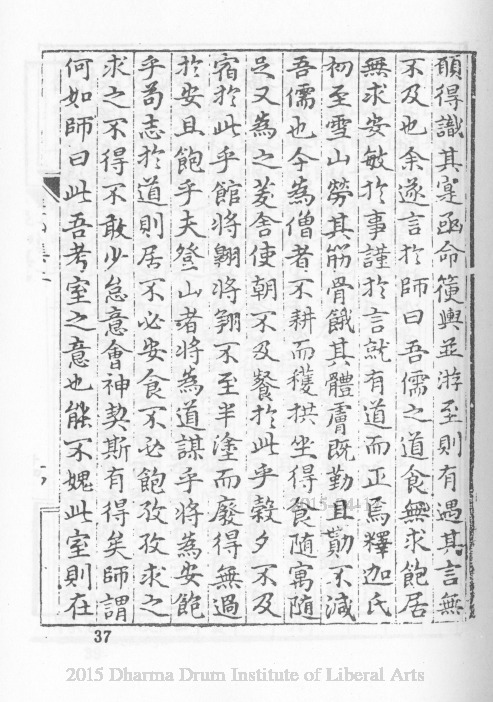 頋得識其寔函命篃輿並游至則有過其言無
不及也余遂言扵師曰吾儒之道食無求飽居
無求安敏扵事謹扵言就有道而正焉釋迦氏
初至雪山勞其筋骨餓其體膚既勤且勩不減
吾儒也今為僧者不耕而穫拱坐得食随寓随
足又為之茇舍使朝不及餐扵此乎穀夕不及
宿扵此乎館將翱將翔不至半塗而廢得無過
扵安且飽乎夫登山者將為道謀乎將為安飽
乎苟志扵道則居不必安食不必飽孜孜求之
求之不得不敢少怠意會神契斯有得矣師謂
何如師曰此吾考室之意也能不媿此室則在
37
2015 Dharma Drum Institute of Liberal Arts